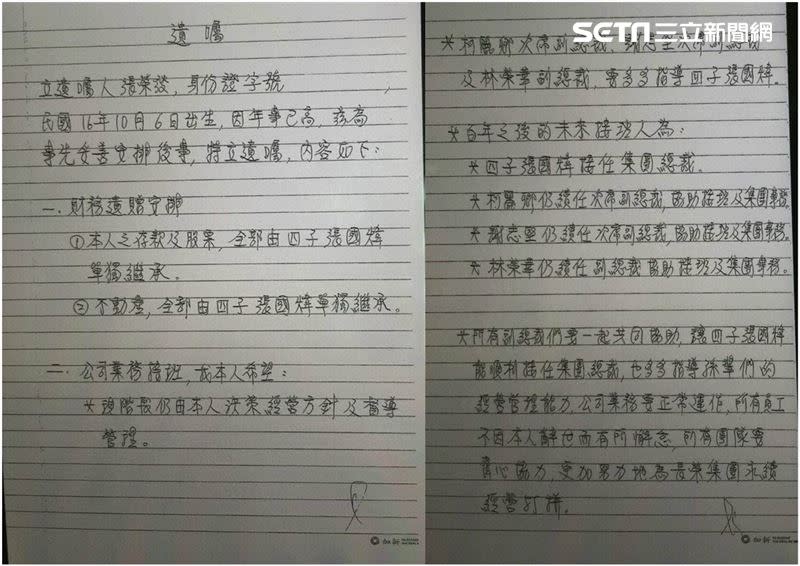 遺囑
立遺囑人張榮發,身份證字號
民國16年10月6日出生,因年事已高,茲為
事先妥善安排後事,特立遺囑,內容如下:
一.財務遺贈安排
①本人之存款及股票,全部由四子張國煒
單獨繼承。
②不動產,全部由四子張國煒單獨繼承。
二.公司業務接班,我本人希望:
*現階段仍由本人決策經營方針及督導
管理。
SETN三立新聞網
*柯麗卿次席副總裁、謝志堅次席副總裁
及林榮華副總裁,要多多指導四子張國煒。
*百年之後的未來接班人為:
*四子張國煒接任集團總裁。
*柯麗卿仍續任次席副總裁,協助接班及集團事務。
*謝志堅仍續任次席副總裁,協助接班及集團事務。
*林榮華仍續任副總裁協助接班及集團事務。
*所有副總裁們要一起共同協助,讓四子張國煒
能順利接任集團總裁,也多多指導孫輩們的
經營管理能力,公司業務要正常運作,所有員工
不因本人辭世而有所懈怠,所有團隊要
齊心協力,更加努力地為長榮集團永續
經營打拼。
加新
加新